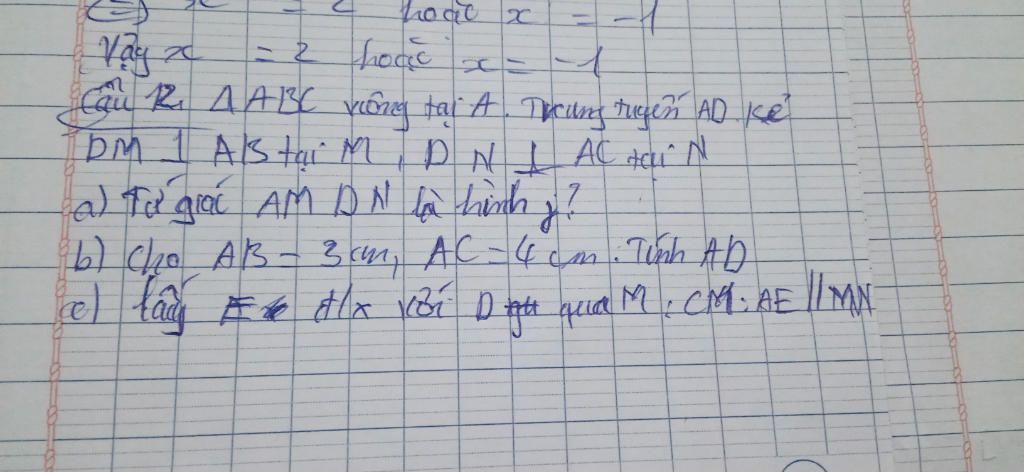 (=) x = 2 hoặc x = -1
Vậy x = 2 hoặc x = -1
Câu 12. ΔABC vuông tại A. Trung tuyến AD. Kẻ
DM ⊥ AB tại M, DN ⊥ AC tại N
a) Tứ giác AMDN là hình j?
b) Cho AB = 3 cm, AC = 4 cm. Tính AD
c) lấy E đ/x với D qua M. CM: AE // MN